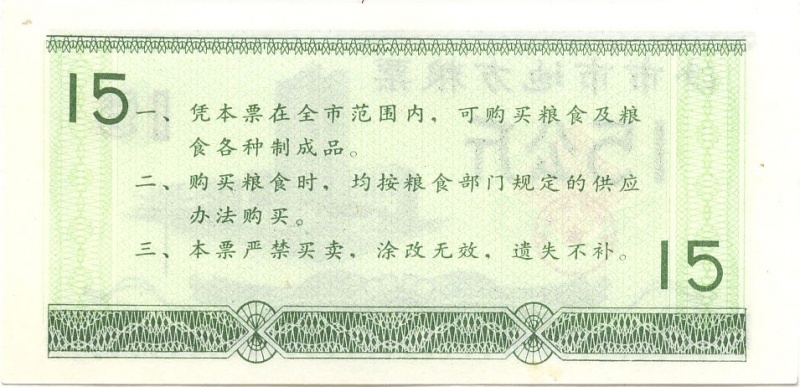 15
一、凭本票在全市范围内，可购买粮食及粮
食各种制成品。
二、购买粮食时，均按粮食部门规定的供应
办法购买。
三、本票严禁买卖，涂改无效，遗失不补。
15